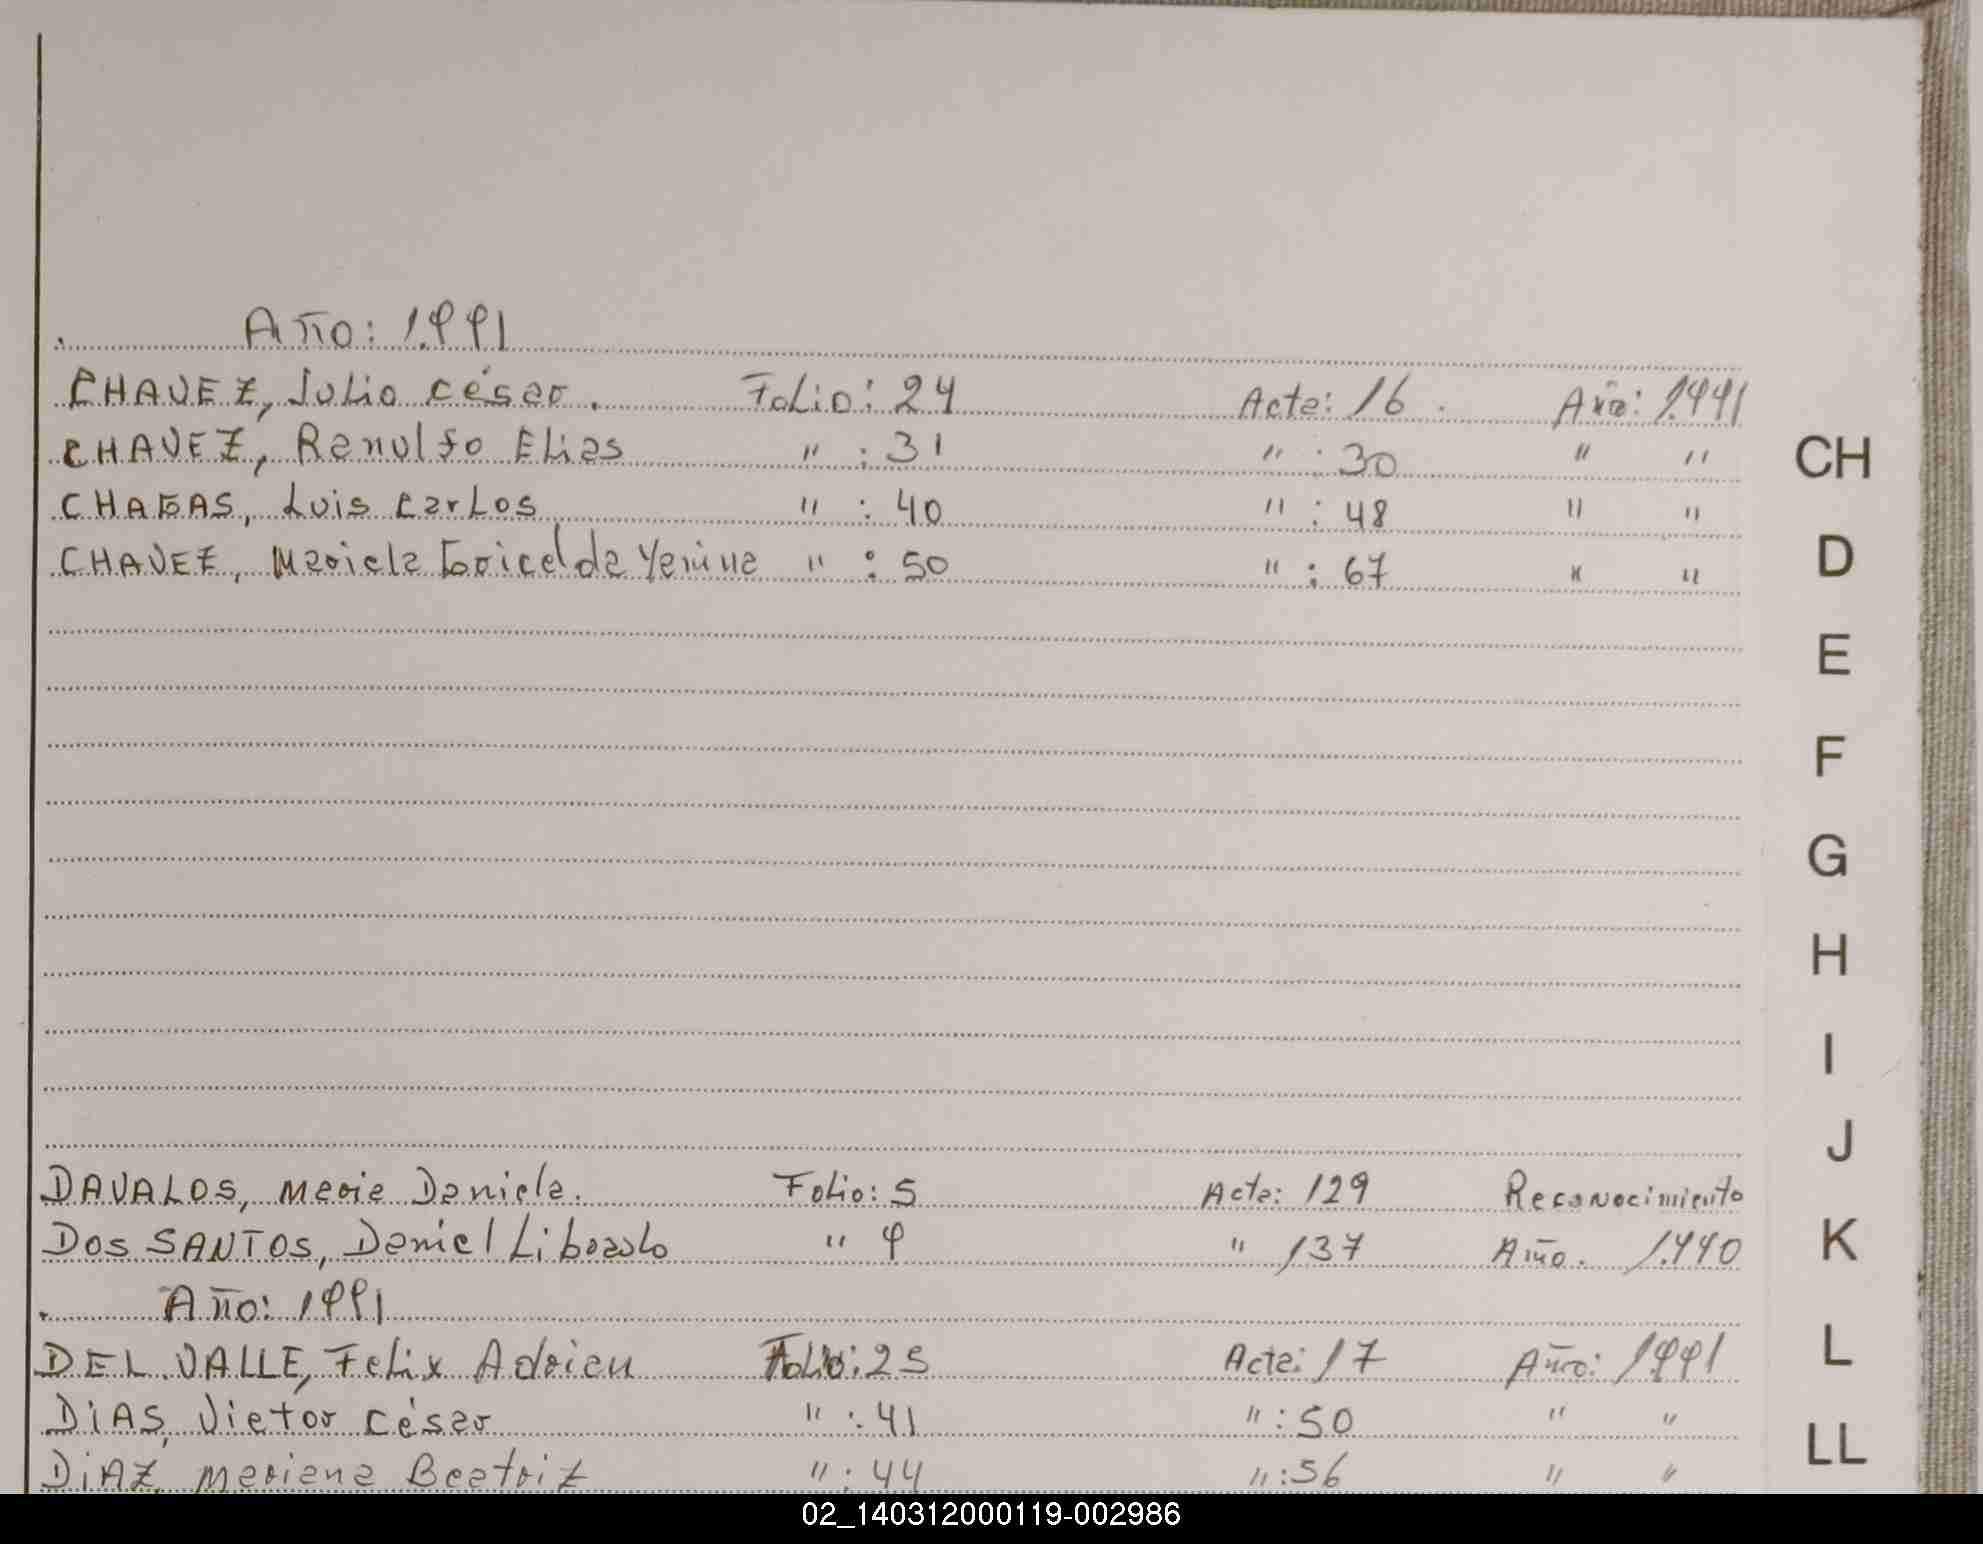 Año: 1.991
CHAVEZ, Julio César. Folio: 24 Acta: 16. Año: 1.991
CHAVEZ, Ranulfo Elias " : 31 " : 30 " "
CHAGAS, Luis Carlos " : 40 " : 48 " "
CHAVEZ, Mariela Goricelda Yanina " : 50 " : 67 " "
CH
D
E
F
G
H
I
J
DAVALOS, Maria Daniela. Folio: 5 Acta: 129 Reconocimiento
DOS SANTOS, Daniel " 9 " 137 Año. 1.990
K
Año: 1991
DEL VALLE, Felix Adrian Folio: 25 Acta: 17 Año: 1991
L
DiAS, Victor César " : 41 " : 50 " "
DiAZ, Mariana Beatriz " : 44 " : 56 " "
LL
02_140312000119-002986